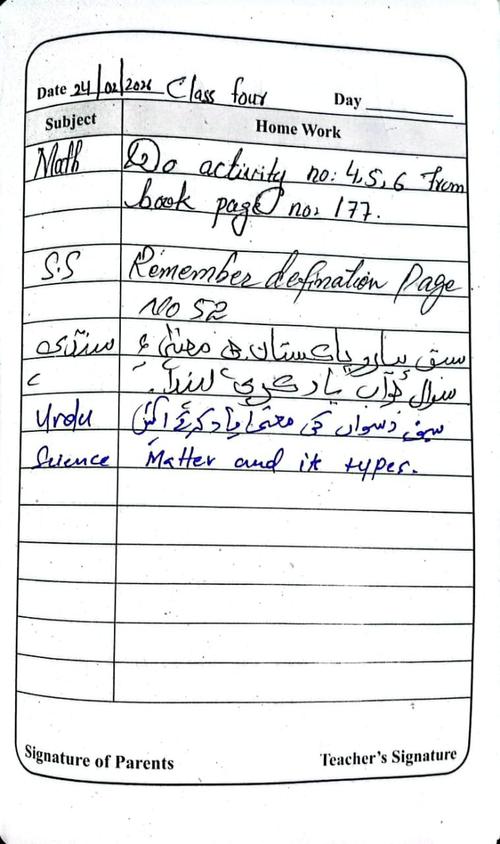 Date 24/02/2026 Class four Day
Subject Home Work
Math Do activity no: 4,5,6 From
book page no: 177.
S.S Remember defination Page
No 52
سنڌي سبق پيارو پاڪستان جي معنيٰ ۽
سوال جواب ياد ڪري
Urdu سبق دسواں کی معنی یاد کر کے
Science Matter and it types.
Signature of Parents Teacher's Signature